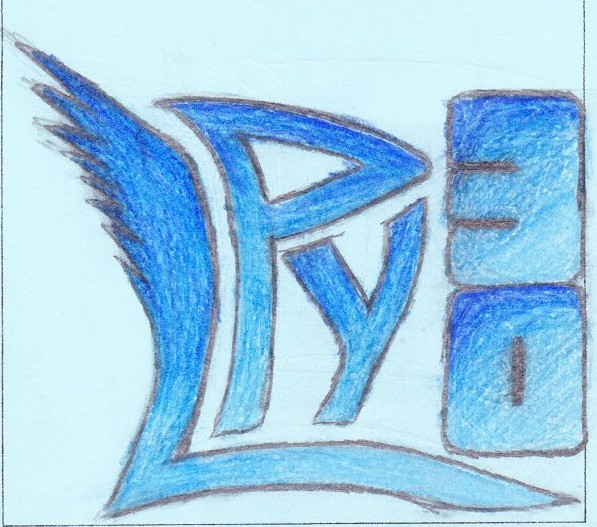 Py 30